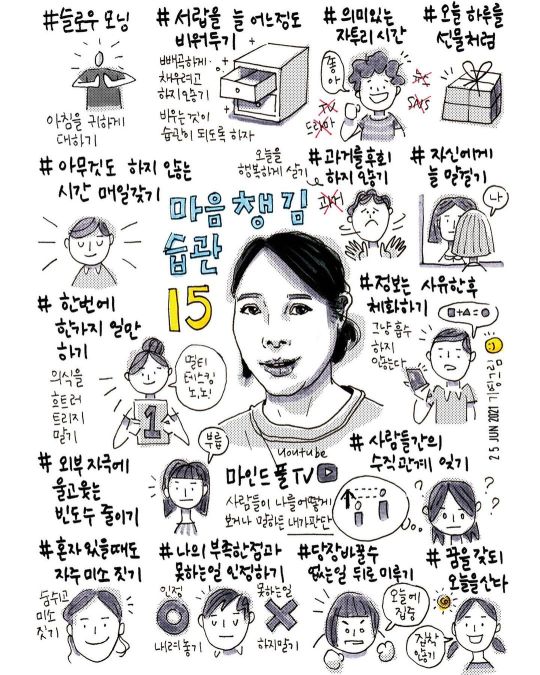 #슬로우 모닝
아침을 귀하게
대하기
#서랍을 늘 어느정도
비워두기
빼곡하게
채우려고
하지않기
비우는것이
습관이 되도록 하자
#의미있는
자투리 시간
좋아
TV
SNS
#오늘 하루를
선물처럼
#아무것도 하지 않는
시간 매일갖기
오늘을
행복하게 살기
#과거를 후회
하지 않기
과거
#자신에게
늘 말걸기
나
마음챙김
습관
15
#한번에
한가지 일만
하기
의식을
흐트러
트리지
말기
멀티
태스킹
노,노!
1
#정보는 사유한후
체화하기
그냥 흡수
하지
않는다
■+▲=●
25 JUN 2021
#외부 자극에
울고웃는
빈도수 줄이기
부릅
youtube
마인드풀TV
사람들이 나를 어떻게
보거나 말하든 내가판단
#사람들간의
수직관계 잊기
? ? ?
#혼자 있을때도
자주 미소 짓기
숨쉬고
미소
짓기
#나의 부족한점과
못하는일 인정하기
인정
내려놓기
못하는일
하지말기
#당장바꿀수
없는일 뒤로 미루기
오늘에
집중
#꿈을 갖되
오늘을산다
집착
않기